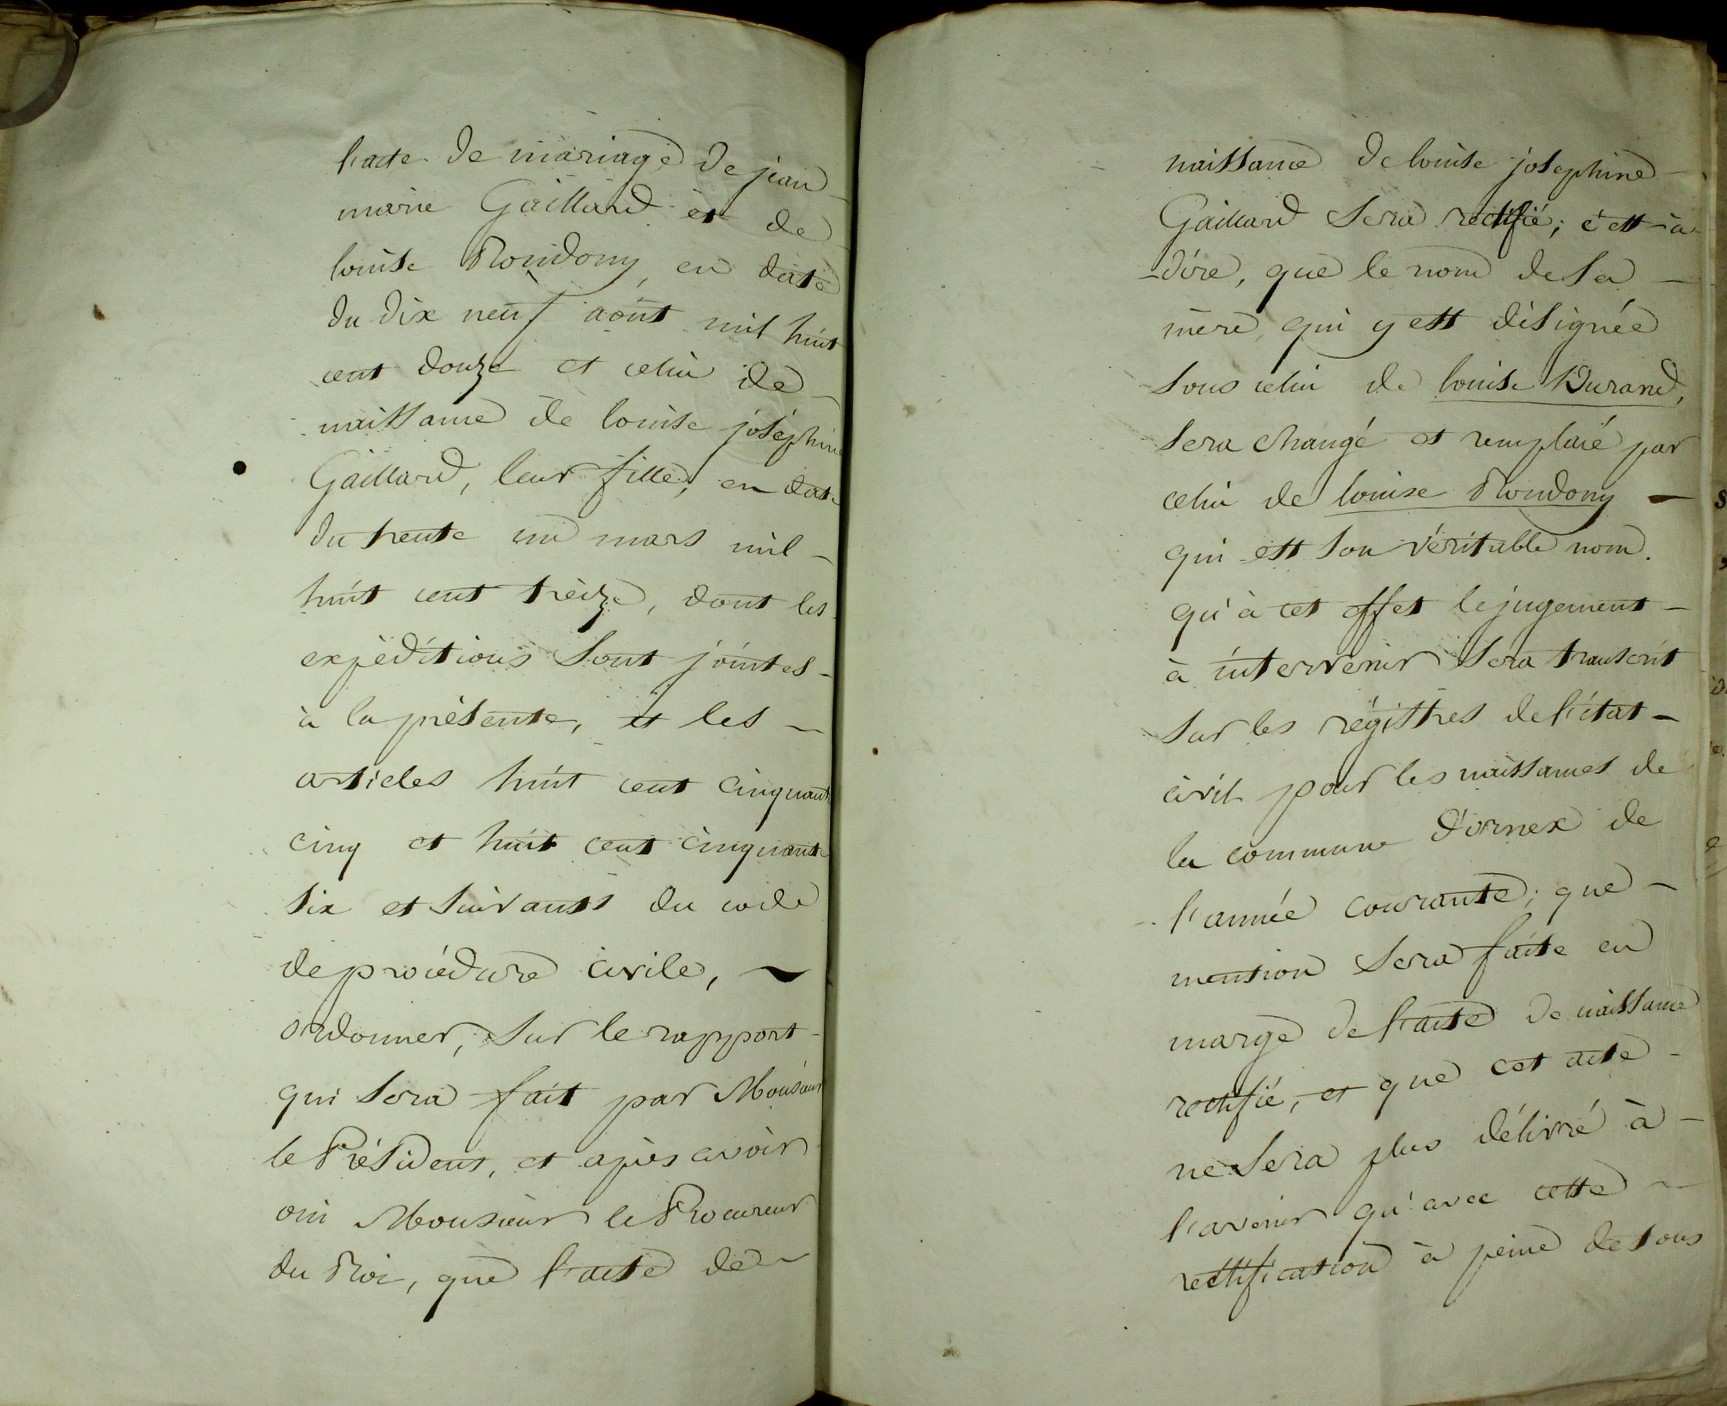 l'acte de mariage de jean
marie Gaillard et de
louise Rondony en date
du dix neuf août mil huit
cent douze et celui de
naissance de louise joséphine
Gaillard, leur fille, en date
du trente un mars mil
huit cent treize, dont les
expéditions sont jointes
à la présente, et les
articles huit cent cinquante
cinq et huit cent cinquante
six et suivants du code
de procédure civile,
ordonner, sur le rapport
qui sera fait par Monsieur
le Président, et après avoir
oui Monsieur le Procureur
du Roi, que l'acte de
naissance de louise josephine
Gaillard sera rectifié; c'est-à-
-dire, que le nom de sa
mère, qui y est désignée
sous celui de louise Durand,
sera changé et remplacé par
celui de louise Rondony
qui est son véritable nom.
qu'à cet effet le jugement
à intervenir sera transcrit
sur les régistres de l'état
civil pour les naissances de
la commune d'ornex de
l'année courante; que
mention sera faite en
marge de l'acte de naissance
rectifié, et que cet acte
ne sera plus délivré à
l'avenir qu'avec cette
rectification à peine de tous